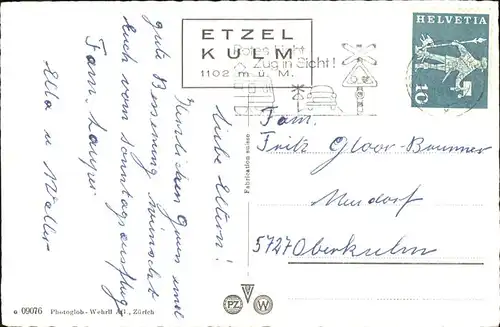 ETZEL
KULM
1102 m ü. M.
Rotes Licht
Zug in Sicht!
HELVETIA
10
Liebe Eltern!
Herzlichen Gruss und
gute Besserung wünscht
Euch vom Sonntagsausflug
Fam.
Ella u Walter
Fam.
Fritz Gloor-Brunner
Neudorf
5727 Oberkulm
Fabrication suisse
09076 Photoglob-Wehrli AG., Zürich
PZ
W